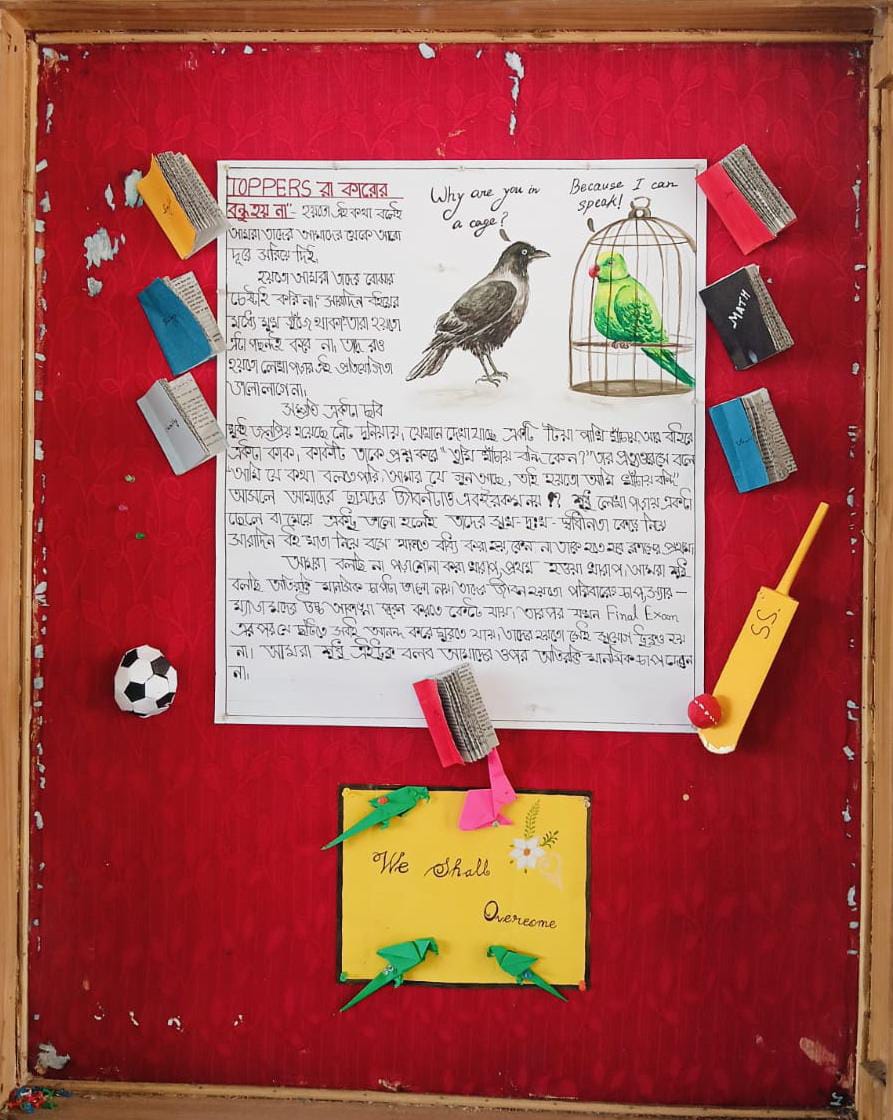 TOPPERS রা কারোর
বন্ধু হয় না"- হয়তো এই কথা বলেই
আমরা তাদের আমাদের থেকে আরো
দূরে সরিয়ে দিই,
হয়তো আমরা তাদের বোঝার
চেষ্টাই করি না, সারাদিন বইয়ের
মধ্যে মুখ গুঁজে থাকা তারা হয়তো
এটা পছন্দই করে না, তাদেরও
হয়তো লেখাপড়ার এই প্রতিযোগিতা
ভালো লাগে না।
Why are you in
a cage?
Because I can
speak!
সম্প্রতি একটা ছবি
খুবই জনপ্রিয় হয়েছে নেট দুনিয়ায়, যেখানে দেখা যাচ্ছে একটি টিয়া পাখি খাঁচায় আর বাইরে
একটা কাক, কাকটি তাকে প্রশ্ন করে "তুমি খাঁচায় বন্দি কেন?" তার প্রত্যুত্তরে সে বলে
"আমি যে কথা বলতে পারি, আমার যে গুন আছে, তাই হয়তো আমি খাঁচায় বন্দি"
আসলে আমাদের ছাত্রদের জীবনটাও এবইরকম নয় কি? শুধু লেখা পড়ায় একটা
ছেলে বা মেয়ে একটু ভালো হলেই তাদের সুখ-দুঃখ-স্বাধীনতা কেড়ে নিয়ে
সারাদিন বই খাতা নিয়ে বসে থাকতে বাধ্য করা হয়, কেন না তাকে হতে হবে ক্লাসের প্রথম।
আমরা বলছি না পড়াশোনা করা খারাপ, প্রথম হওয়া খারাপ, আমরা শুধু
বলছি অতিরিক্ত মানসিক চাপটা ভালো নয়, তাদের জীবন হয়তো পরিবারের চাপ, স্যার-
ম্যাডামদের উচ্চ আকাঙ্ক্ষা পূরন করতে কেটে যায়, তারপর যখন Final Exam
এর পর যে ছুটিতে সবাই আনন্দ করে ঘুরতে যায়, তাদের হয়তো সেই সুযোগ টুকুও হয়
না। আমরা শুধু এইটুকু বলব আমাদের ওপর অতিরিক্ত মানসিক চাপ দেবেন
না।
MATH
SS
We Shall
Overcome